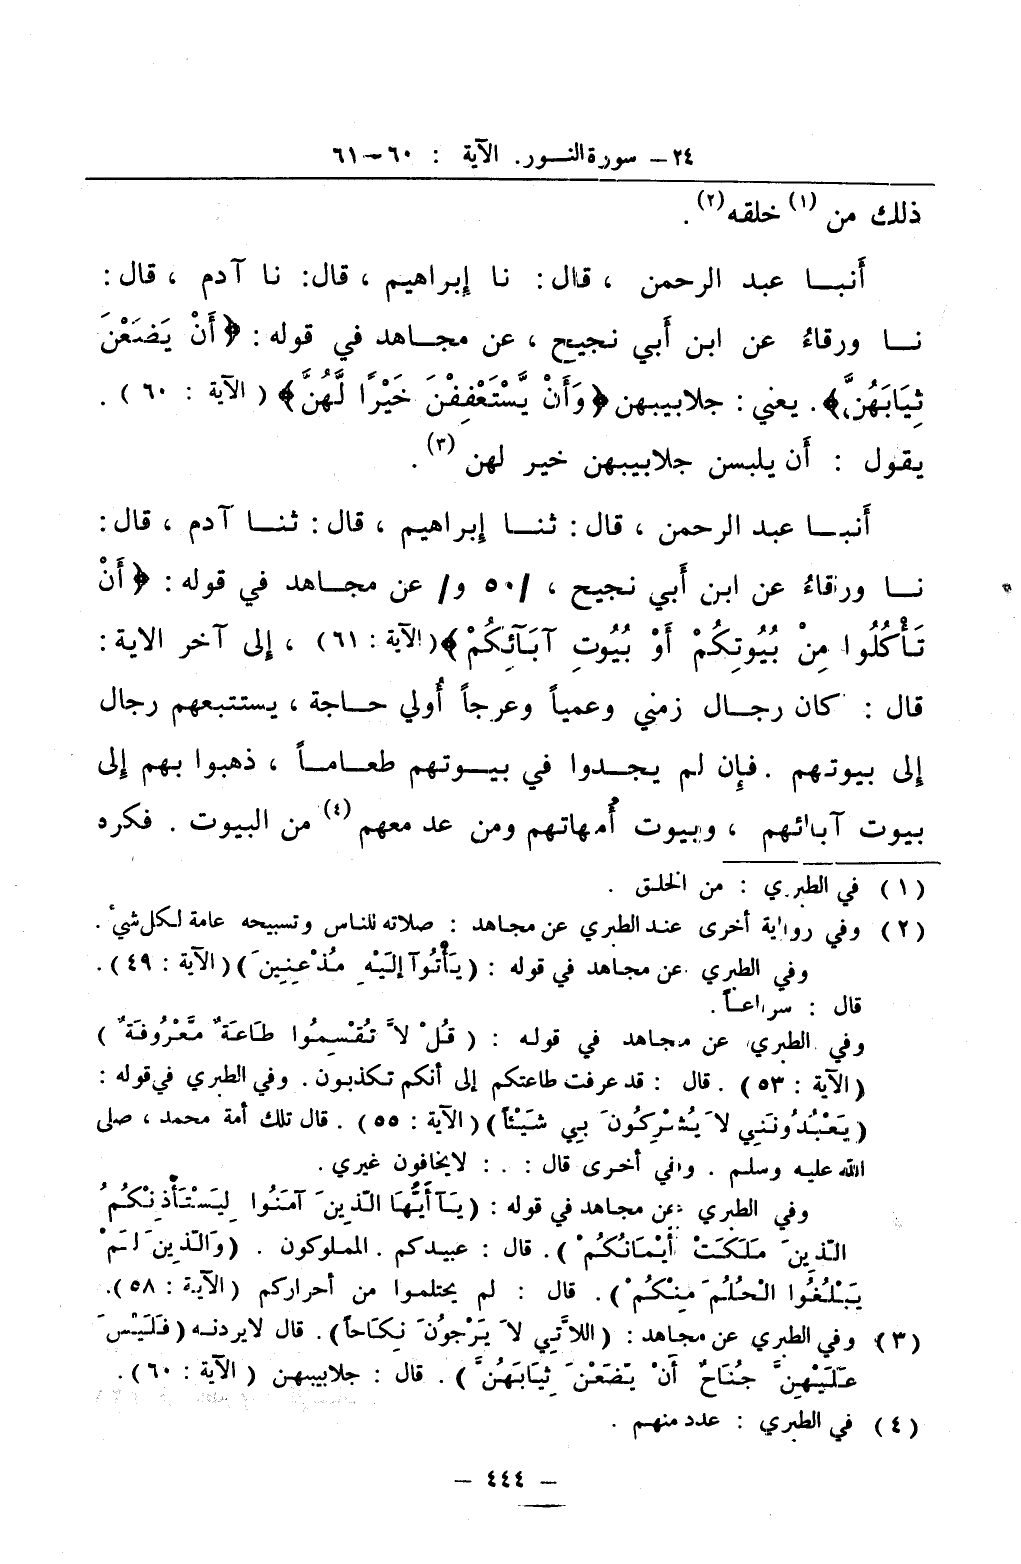 ٢٤ – سورة النور. الآية : ٦٠–٦١
ذلك من (١) خلقه (٢) .
أنبا عبد الرحمن ، قال : نا إبراهيم ، قال: نا آدم ، قال :
نا ورقاءُ عن ابن أبي نجيح ، عن مجاهد في قوله : ﴿أَنْ يَضَعْنَ
ثِيَابَهُنَّ﴾. يعني : جلابيبهن ﴿وَأَنْ يَّسْتَعْفِفْنَ خَيْرًا لَّهُنَّ﴾ ( الآية : ٦٠ ) .
يقول : أن يلبسن جلابيبهن خير لهن (٣) .
أنبا عبد الرحمن ، قال : ثنا إبراهيم ، قال : ثنا آدم ، قال :
نا ورقاءُ عن ابن أبي نجيح ، /٥٠ و/ عن مجاهد في قوله : ﴿أَنْ
تَأْكُلُوا مِنْ بُيُوتِكُمْ أَوْ بُيُوتِ آبَآئِكُمْ﴾ (الآية : ٦١) ، إلى آخر الاية :
قال : كان رجال زمني وعمياً وعرجاً أُولي حاجة ، يستتبعهم رجال
إلى بيوتهم . فإن لم يجدوا في بيوتهم طعاماً ، ذهبوا بهم إلى
بيوت آبائهم ، وبيوت أُمهاتهم ومن عد معهم (٤) من البيوت . فكره
(١) في الطبري : من الخلق .
(٢) وفي رواية أخرى عند الطبري عن مجاهد : صلاته للناس وتسبيحه عامة لكل شيء .
وفي الطبري عن مجاهد في قوله : (يَأْتُوآ إلَيْهِ مُذْعِنِينَ) (الآية : ٤٩) .
قال : سراعاً .
وفي الطبري عن مجاهد في قوله : ( قُلْ لاَّ تُقْسِمُوا طَاعَةٌ مَّعْرُوفَةٌ )
(الآية : ٥٣) . قال : قد عرفت طاعتكم إلى أنكم تكذبون . وفي الطبري في قوله :
(يَعْبُدُونَنِي لاَ يُشْرِكُونَ بِي شَيْئًا) (الآية : ٥٥) . قال تلك أمة محمد ، صلى
الله عليه وسلم . وفي أخرى قال : . : لا يخافون غيري .
وفي الطبري عن مجاهد في قوله : (يَآ أَيُّهَا الَّذِينَ آمَنُوا لِيَسْتَأْذِنْكُمُ
الَّذِينَ مَلَكَتْ أَيْمَانُكُمْ ) . قال : عبيدكم . المملوكون . (وَالَّذِينَ لَمْ
يَبْلُغُوا الْحُلُمَ مِنْكُمْ ) . قال : لم يحتلموا من أحراركم (الآية : ٥٨) .
(٣) وفي الطبري عن مجاهد : (اللاَّتِي لاَ يَرْجُونَ نِكَاحاً) . قال لا يردنه (فَلَيْسَ
عَلَيْهِنَّ جُنَاحٌ أَنْ يَّضَعْنَ ثِيَابَهُنَّ ) . قال : جلابيبهن ( الآية : ٦٠) .
(٤) في الطبري : عدد منهم .
– ٤٤٤ –